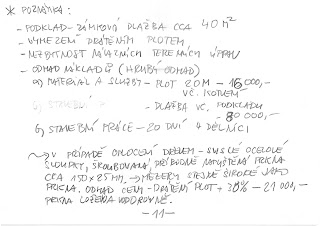 * POZNÁMKA:
- PODKLAD - ZÁMKOVÁ DLAŽBA CCA 40 m²
- VYMEZENÍ DRÁTĚNÝM PLOTEM
- NEZBYTNOST TERÉNNÍCH ÚPRAV
- ODHAD NÁKLADŮ (HRUBÝ ODHAD)
a) MATERIÁL A SLUŽBY - PLOT 20M - 16 000,-
VČ. KOTVENÍ
- DLAŽBA VČ. PODKLADU
- 80 000,-
b) STAVEBNÍ PRÁCE - 20 DNÍ 4 DĚLNÍCI
V PŘÍPADĚ OPLOCENÍ DŘEVEM - SVISLÉ OCELOVÉ
SLOUPKY, ŠROUBOVANÁ, PRKNA
CCA 150 x 25 MM, MEZERY STEJNĚ ŠIROKÉ JAKO
PRKNA. ODHAD CENY - DRÁTĚNÝ PLOT + 30% - 21 000,-
PRKNA VODOROVNĚ.
- 11 -